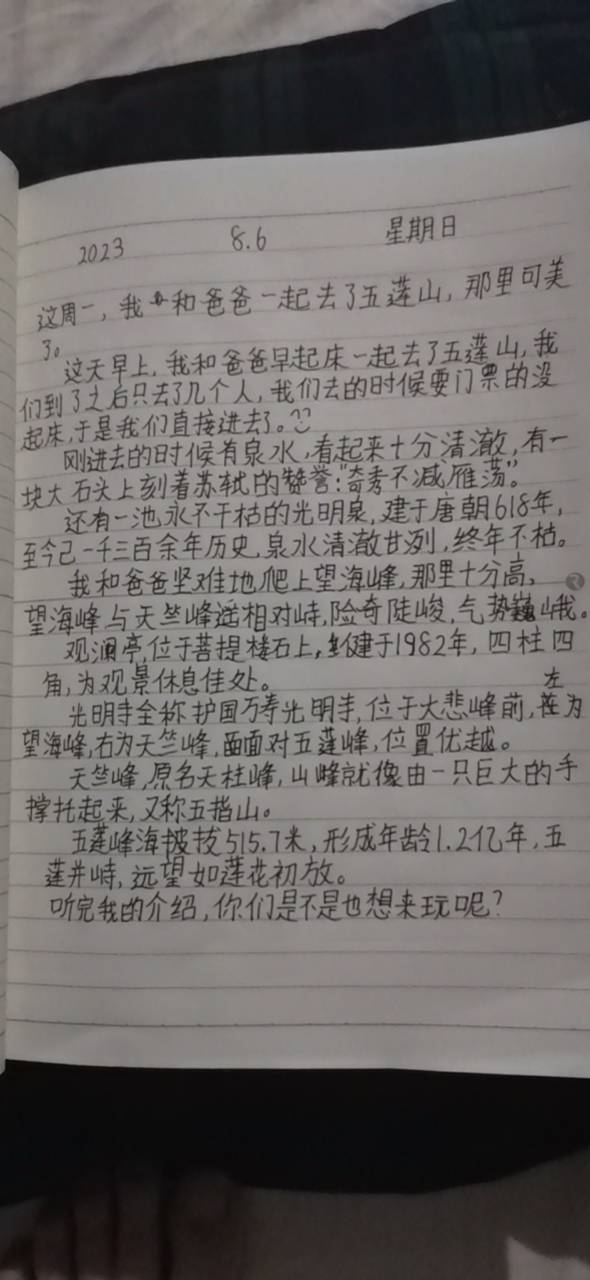 2023 8.6 星期日
这周一,我和爸爸一起去了五莲山,那里可美
了。
这天早上,我和爸爸早起床一起去了五莲山,我
们到了之后只去了几个人,我们去的时候要门票的没
起床,于是我们直接进去了。
刚进去的时候有泉水,看起来十分清澈,有一
块大石头上刻着苏轼的赞誉:“奇秀不减雁荡”。
还有一池永不干枯的光明泉,建于唐朝618年,
至今己一千三百余年历史,泉水清澈甘洌,终年不枯。
我和爸爸坚难地爬上望海峰,那里十分高,
望海峰与天竺峰遥相对峙,险奇陡峻,气势巍峨。
观澜亭,位于菩提楼石上,始建于1982年,四柱四
角,为观景休息佳处。
光明寺全称护国万寿光明寺,位于大悲峰前,左为
望海峰,右为天竺峰,面对五莲峰,位置优越。
天竺峰,原名天柱峰,山峰就像由一只巨大的手
撑托起来,又称五指山。
五莲峰海拔515.7米,形成年龄1.2亿年,五
莲并峙,远望如莲花初放。
听完我的介绍,你们是不是也想来玩呢?